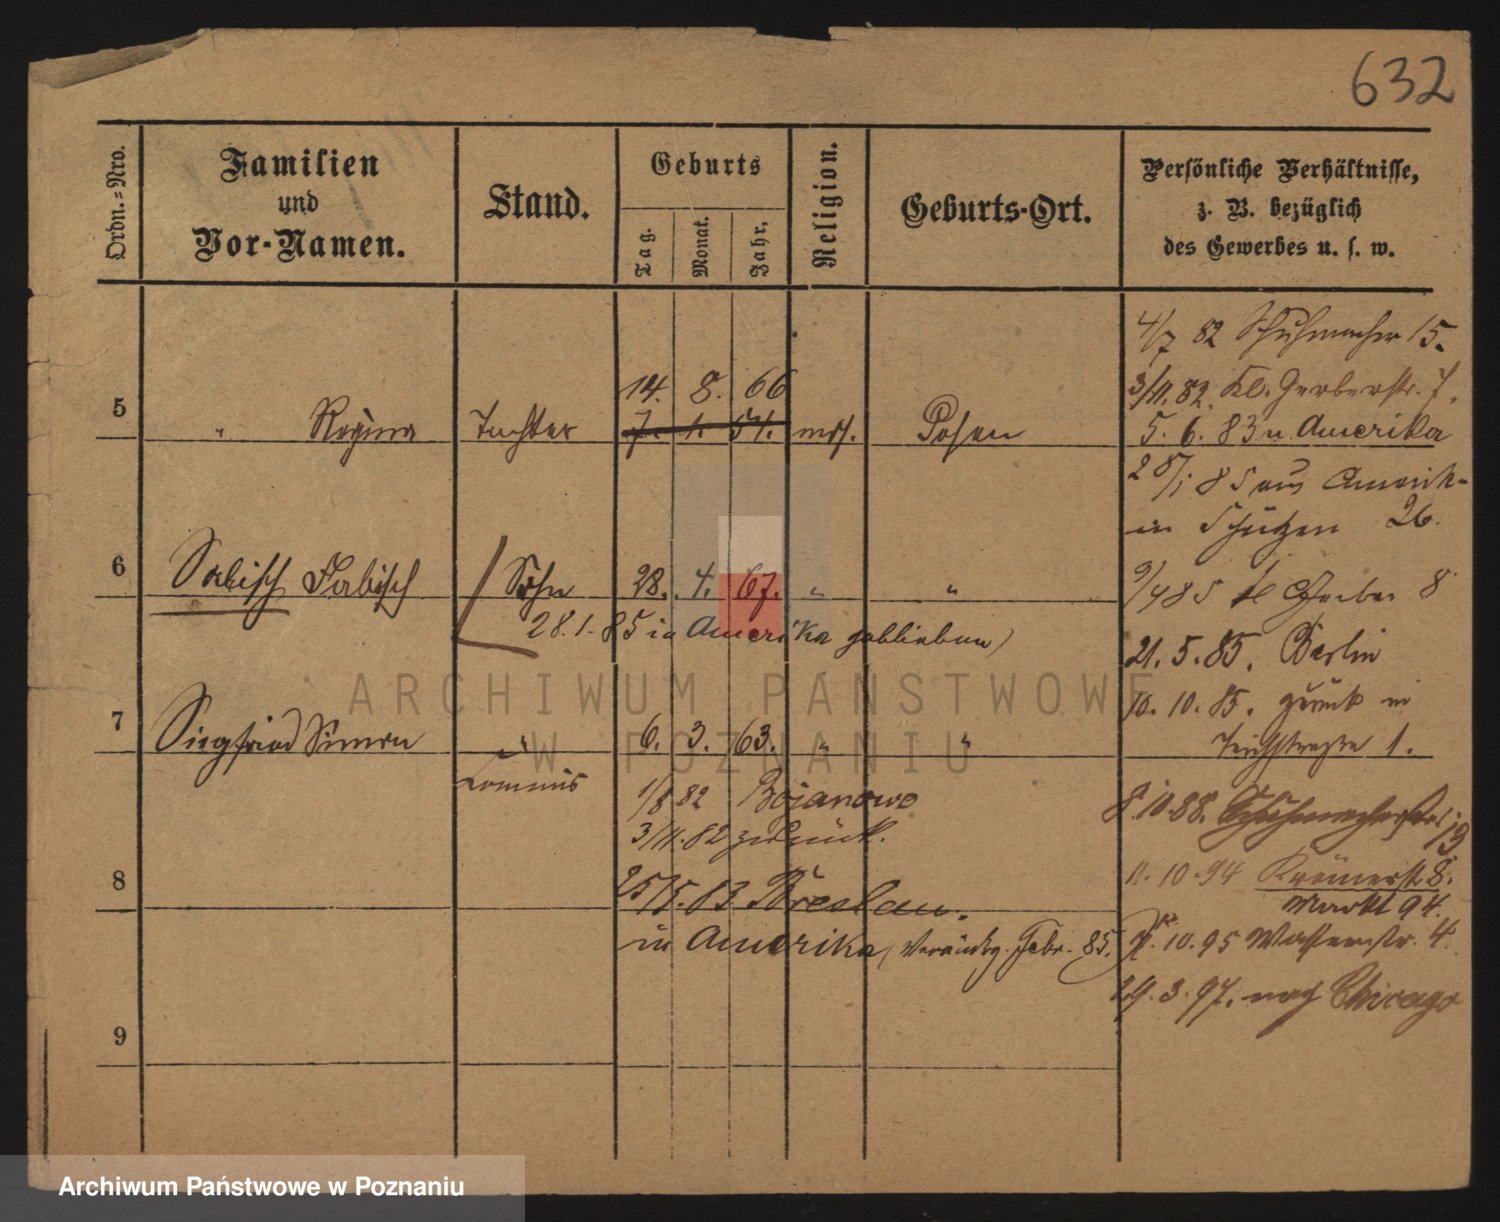 632
Ordn.-Nro.
Familien
und
Vor-Namen.
Stand.
Geburts
Tag.
Monat.
Jahr.
Religion.
Geburts-Ort.
Persönliche Verhältnisse,
z. B. bezüglich
des Gewerbes u. s. w.
4/7 82 Schuhmacher 15.
14. 8. 66
3/11. 82. Kl. Gerberstr. 7.
5
" Regina Tochter 7. 1. 54. mos. Posen
5. 6. 83 n. Amerika
28/1 85 aus Amerik-
in Schützen 26.
6
Salisch Jabisch Sohn 28. 4. 67. " "
9/4 85 kl Gerber 8
28. 1. 85 in Amerika geblieben)
21. 5. 85. Berlin
10. 10. 85. zurück in
7
Siegfried Simon " 6. 3. 63. " "
Teichstraße 1.
Commis
1/8 82 Bojanowo
8. 10. 88. Schuhmacherstr. 13
3/11. 82 zurück.
8
25/5. 83 Breslau.
11. 10. 94 Krämerstr. 8.
Markt 94.
in Amerika (Verändrg. Febr. 85.)
10. 95 Wasserstr. 4.
29. 3. 97. nach Chicago
9
ARCHIWUM PAŃSTWOWE
W POZNANIU
Archiwum Państwowe w Poznaniu